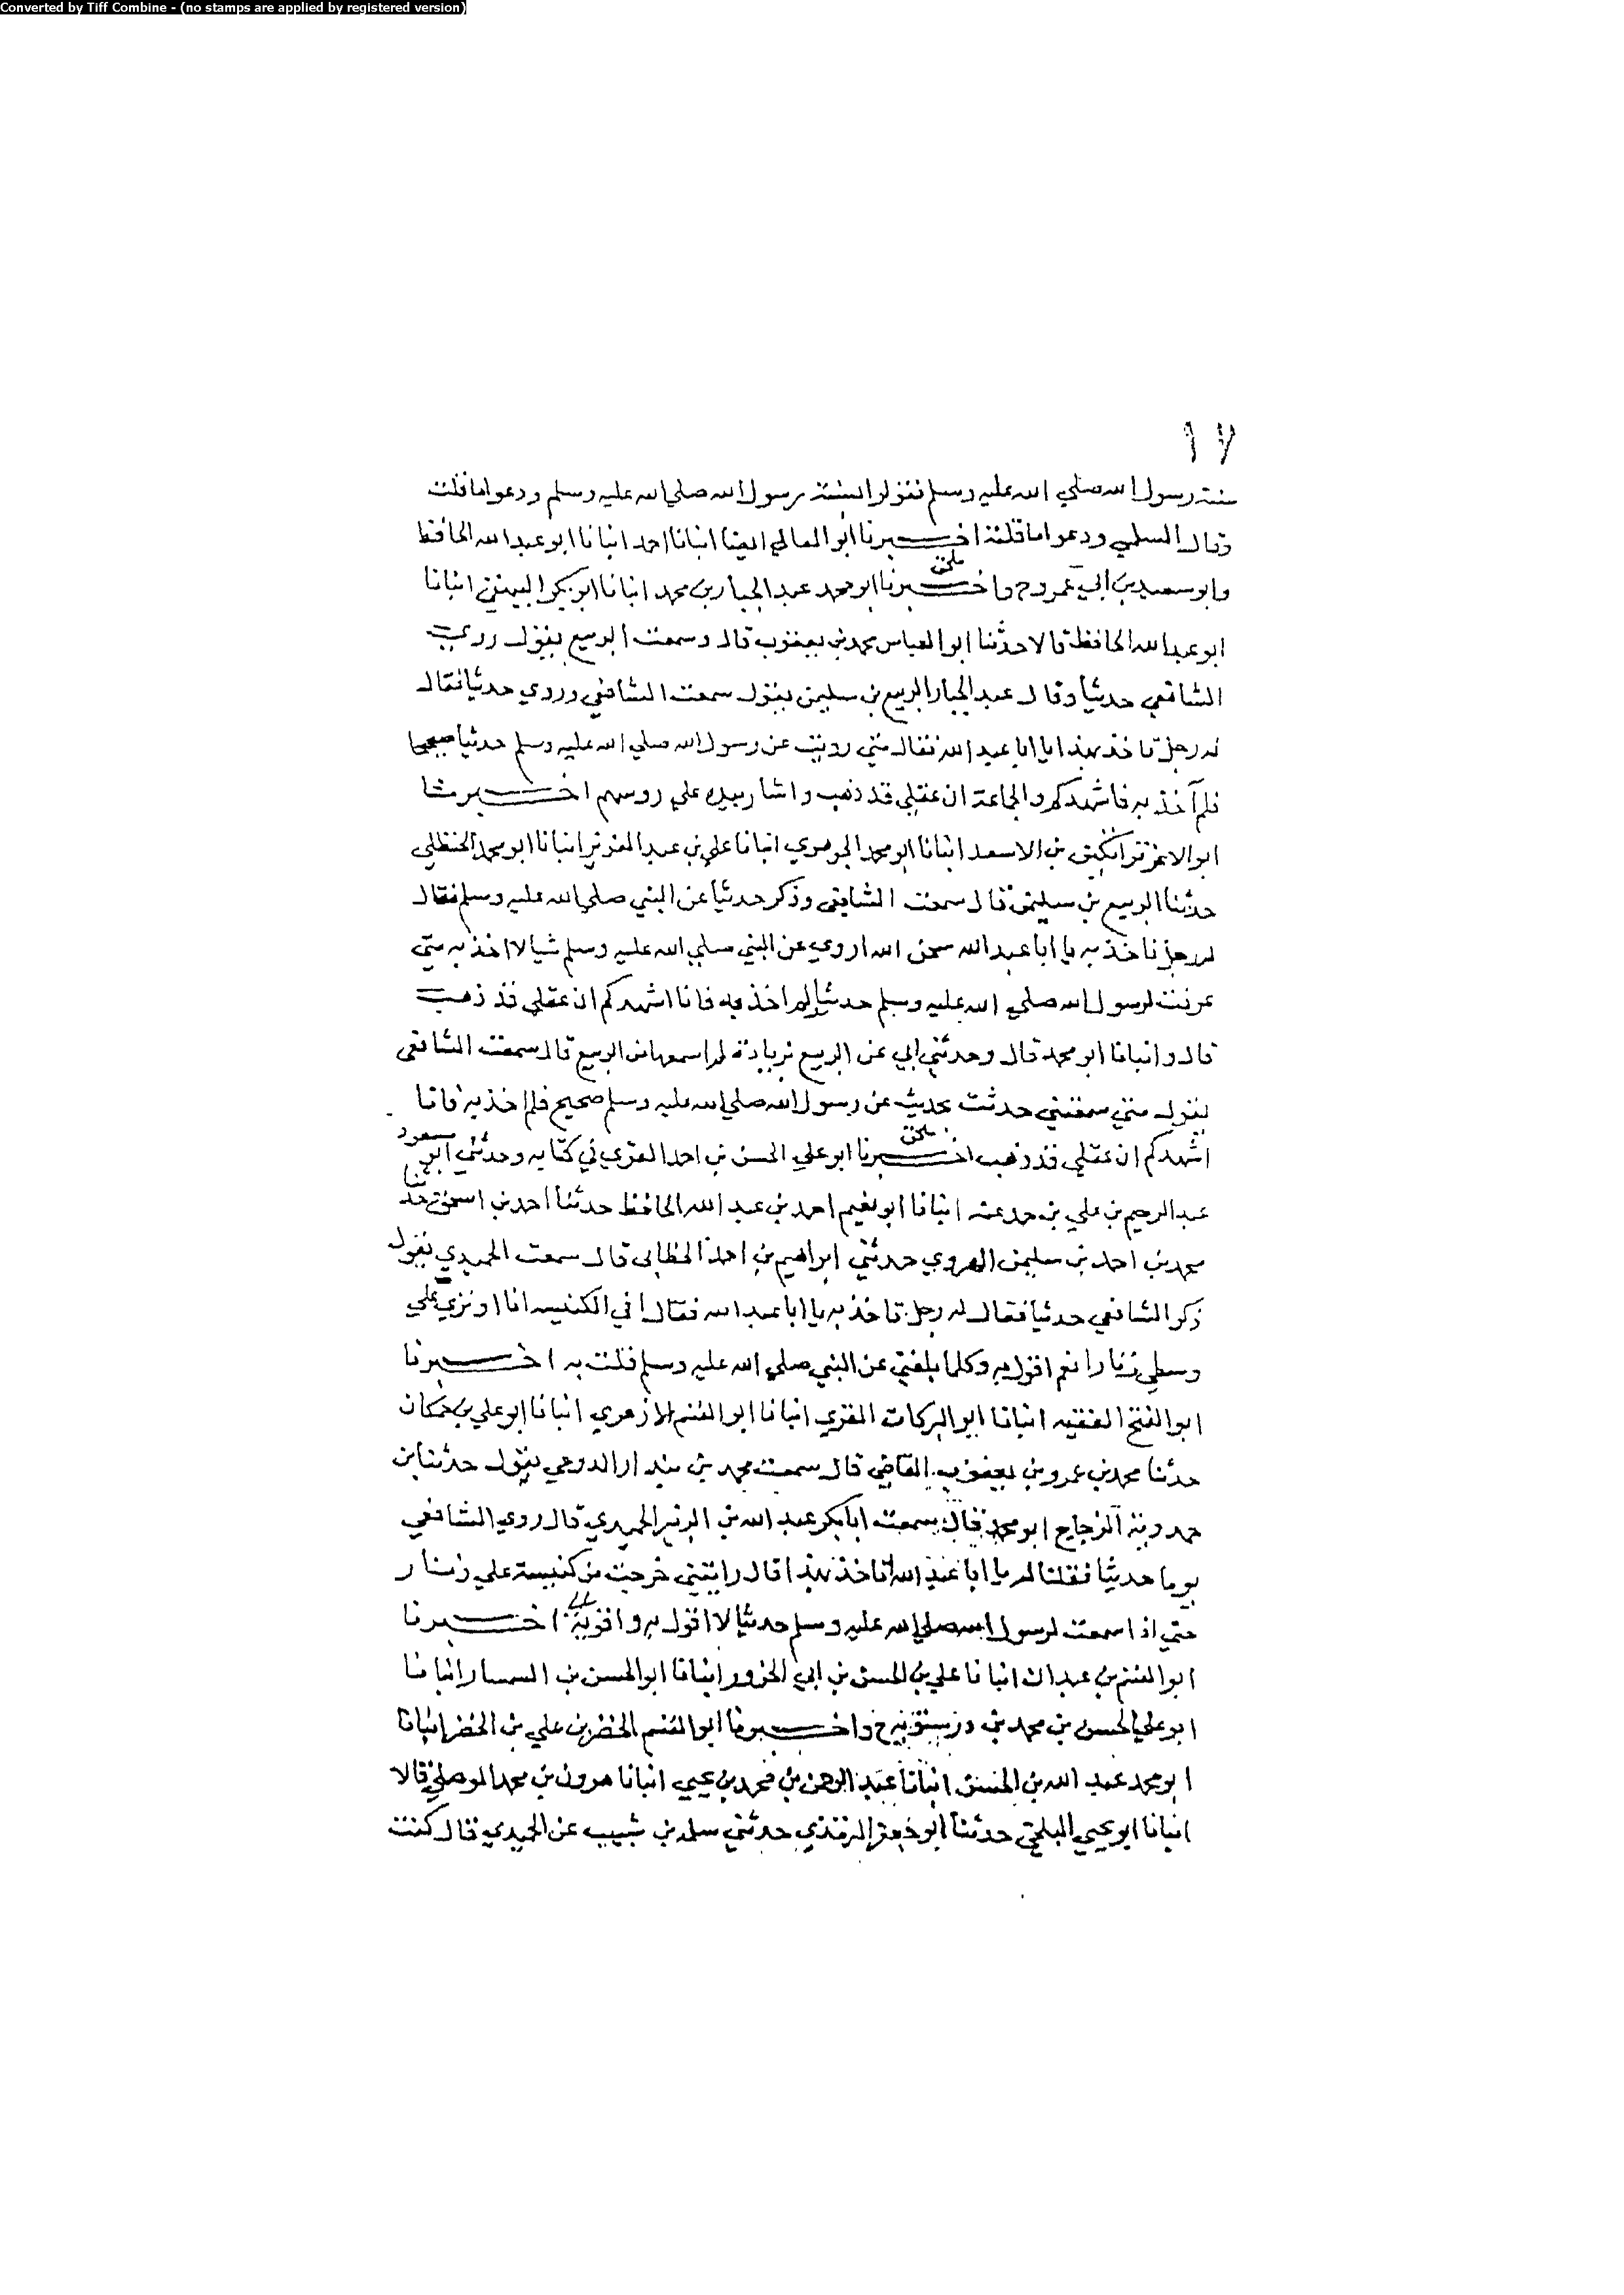 Converted by Tiff Combine - (no stamps are applied by registered version)
١٧
سنة رسول الله صلي الله عليه وسلم فقولوا بسنة رسول الله صلي الله عليه وسلم ودعوا ما قلت
وقال السلمي ودعوا ما قلته اخبرنا ابو المعالي ايضا انبانا احمد انبانا ابو عبد الله الحافظ
وابو سعيد بن ابي عمرو ح واخبرنا ابو محمد عبد الجبار بن محمد انبانا ابو بكر البيهقي انبانا
ملحق
ابو عبد الله الحافظ قالا حدثنا ابو العباس محمد بن يعقوب قال وسمعت الربيع يقول روي
الشافعي حديثا وقال عبد الجبار الربيع بن سليمن يقول سمعت الشافعي وروي حديثا فقال
له رجل تاخذ بهذا يا ابا عبد الله فقال متي رويت عن رسول الله صلي الله عليه وسلم حديثا صحيحا
فلم آخذ به فاشهدكم والجماعة ان عقلي قد ذهب واشار بيده علي روسهم اخبرنا
ابو الاعز قراتكين بن الاسعد انبانا ابو محمد الجوهري انبانا علي بن عبد العزيز انبانا ابو محمد الحنظلي
حدثنا الربيع بن سليمن قال سمعت الشافعي وذكر حديثا عن النبي صلي الله عليه وسلم فقال
له رجل تاخذ به يا ابا عبد الله سبحن الله اروي عن النبي صلي الله عليه وسلم شيا لا اخذ به متي
عرفت لرسول الله صلي الله عليه وسلم حديثا ولم اخذ به فانا اشهدكم ان عقلي قد ذهب
قال وانبانا ابو محمد قال وحدثني ابي عن الربيع بزيادة لم اسمعها من الربيع قال سمعت الشافعي
يقول متي سمعتني حدثت بحديث عن رسول الله صلي الله عليه وسلم صحيح فلم اخذ به فانا
اشهدكم ان عقلي قد ذهب اخبرنا ابو علي الحسن بن احمد المقري في كتابه وحدثني ابو مسعود
ملحق
عبد الرحيم بن علي بن حمد عنه انبانا ابو نعيم احمد بن عبد الله الحافظ حدثنا احمد بن اسحق حدثنا
محمد بن احمد بن سليمن الهروي حدثني ابراهيم بن احمد الخطابي قال سمعت الحميدي يقول
ذكر الشافعي حديثا فقال له رجل تاخذ به يا ابا عبد الله فقال افي الكنيسه انا او تري علي
وسطي زنارا نعم اقول به وكلما بلغني عن النبي صلي الله عليه وسلم قلت به اخبرنا
ابو الفتح الفقيه انبانا ابو البركات المقري انبانا ابو القسم الازهري انبانا ابو علي بن حمكان
حدثنا محمد بن عمرو بن يعقوب القاضي قال سمعت محمد بن بندار الدوجي يقول حدثنا بن
حمدويه الزجاج ابو محمد قال سمعت ابا بكر عبد الله بن الزبير الحميدي قال روي الشافعي
يوما حديثا فقلنا له يا ابا عبد الله اتاخذ بهذا قال رايتني خرجت من كنيسة علي زنار
حتي اذا سمعت لرسول الله صلي الله عليه وسلم حديثا لا اقول به واقويه اخبرنا
ابو القسم بن عبدان انبانا علي بن الحسن بن ابي الحزور انبانا ابو الحسن بن السمسار انبانا
ابو علي الحسن بن محمد بن درستويه ح واخبرنا ابو القسم الخضر بن علي بن الخضر انبانا
ابو محمد عبد الله بن الحسن انبانا عبد الرحمن بن محمد بن يحيي انبانا هرون بن محمد الموصلي قالا
انبانا ابو يحيي البلخي حدثنا ابو جعفر الترمذي حدثني سلمه بن شبيب عن الحميدي قال كنت